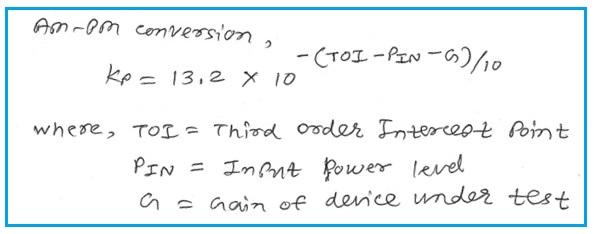 AM-PM conversion,
Kp = 13.2 × 10^-(TOI-PIN-G)/10
where, TOI = Third order Intercept Point
PIN = Input power level
G = Gain of device under test